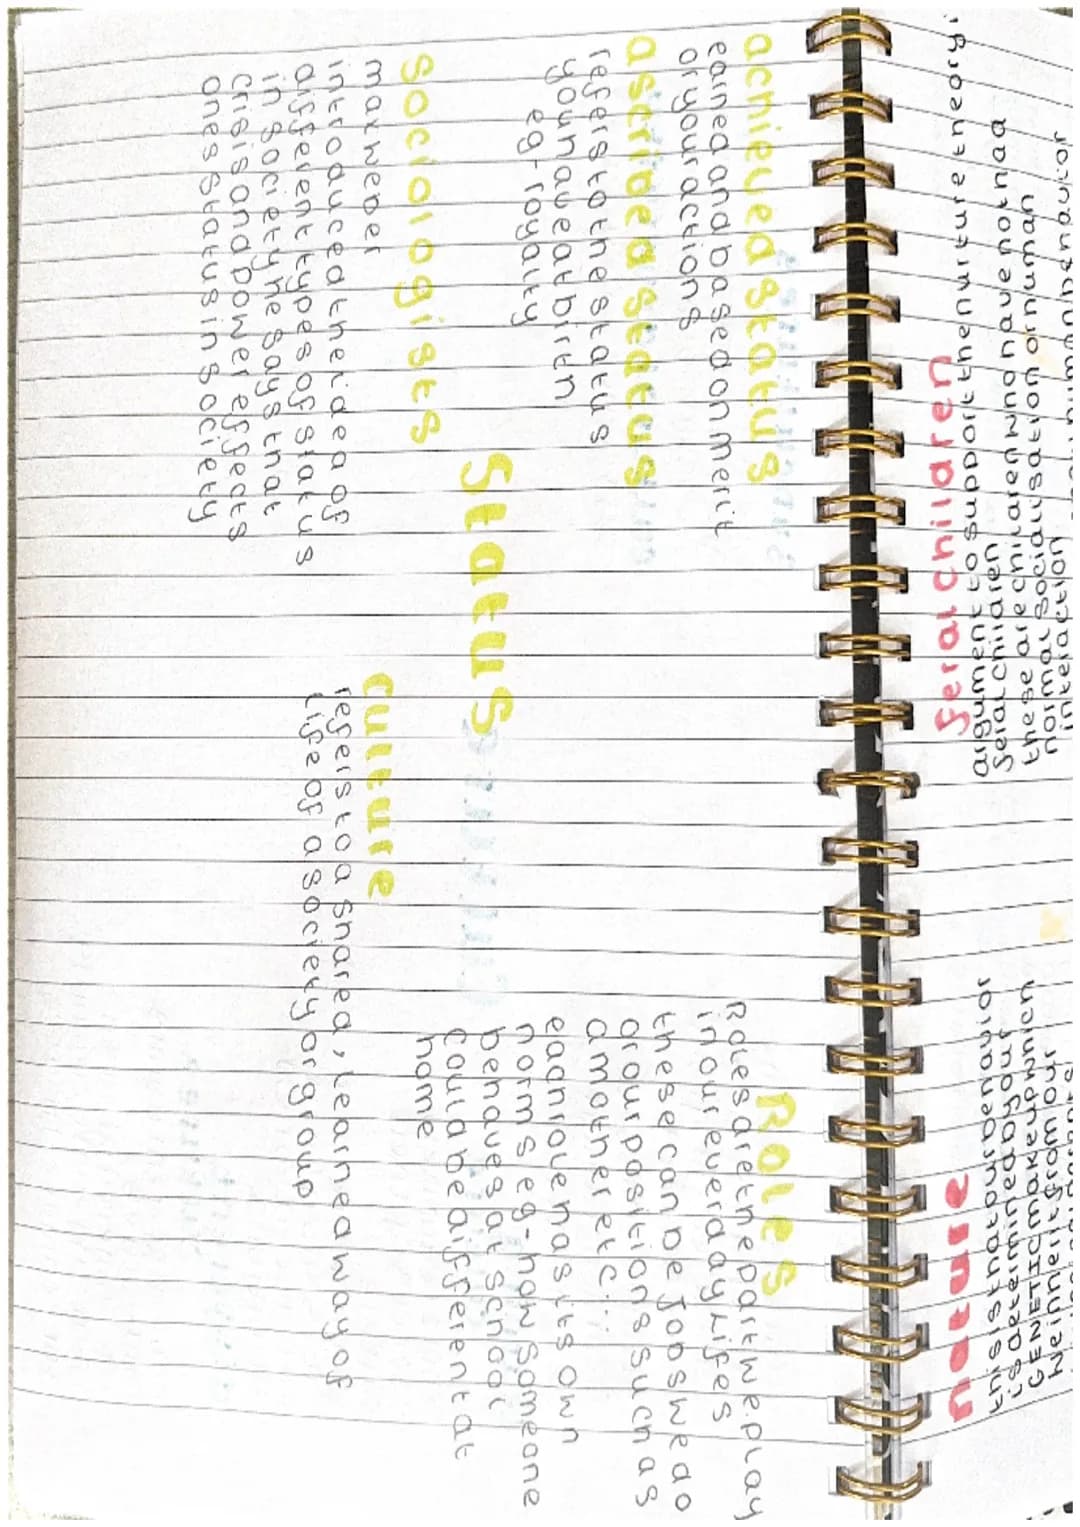 achieved status
earned and based on merit
or your actions
ascribed status
refers to the status
you have at birth
eg-royalty
sociologists
max weber
introduced the idea of
different types of status
in society he says that
crisis and power effects
ones status in society
Status
culture
refers to a shared, learned way of
life of a society or group
Roles
Roles are the part we play
in our everaday lifes
these can be jobs we do
or our positions such as
a mother etc...
each role has its own
norms eg-how someone
behaves at school
could be different at
home
feral children
argument to support the nurture theory:
feral children
these are children who have not had a
normal socialisation or human
interaction
nature
this is that our behavior
is determined by our
GENETIC makeup which
we inherit from our